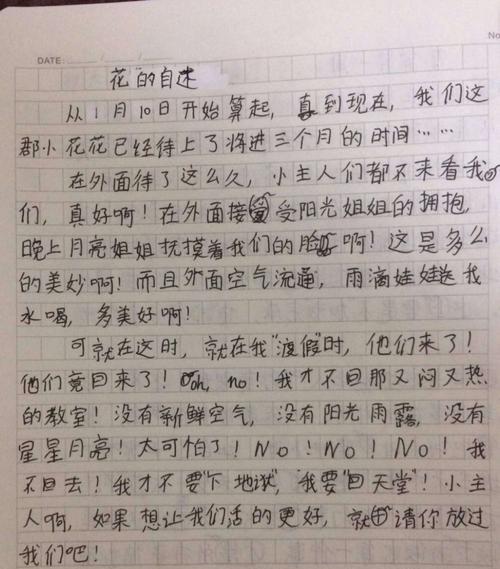 DATE:
No
花"的自述
从1月10日开始算起，真到现在，我们这
郡小花花已经待上了将进三个月的时间……
在外面待了这么久，小主人们都不来看我
们，真好啊！在外面接受阳光姐姐的拥抱，
晚上月亮姐姐抚摸着我们的脸啊！这是多么
的美妙啊！而且外面空气流通，雨滴娃娃送我
水喝，多美好啊！
可就在这时，就在我"渡假"时，他们来了！
他们竟回来了！oh，no！我才不回那又闷又热
的教室！没有新鲜空气，没有阳光雨露，没有
星星月亮！太可怕了！No！No！No！我
不回去！我才不要"下地狱"，我要"回天堂"！小主
人啊，如果想让我们活的更好，就请你放过
我们吧！